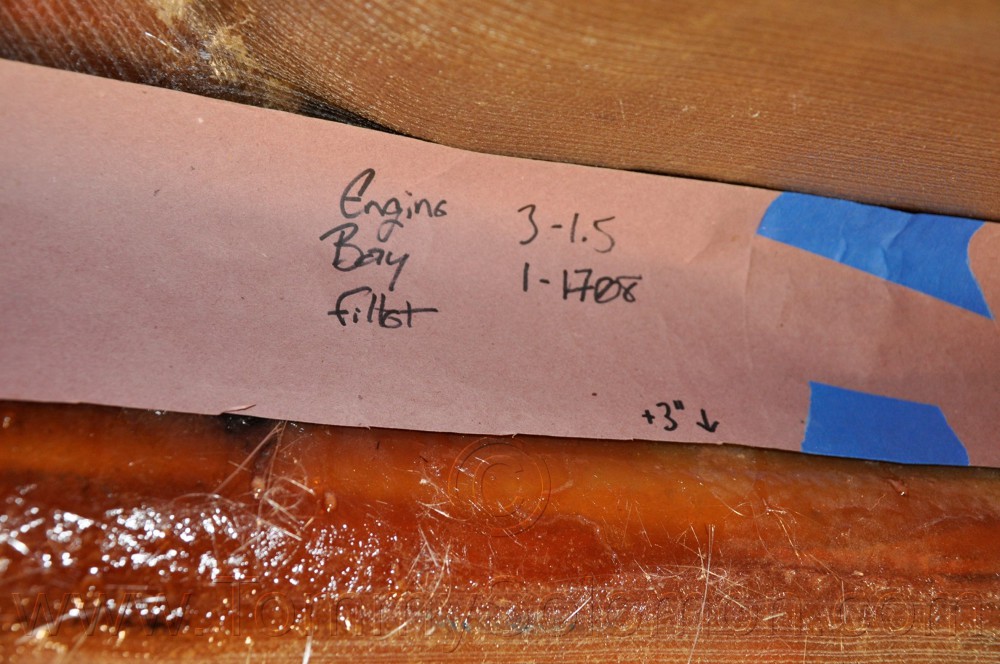 Engine 3-1.5
Bay 1-1708
fillet
+3" ↓
©
www.TommysSolomon.com